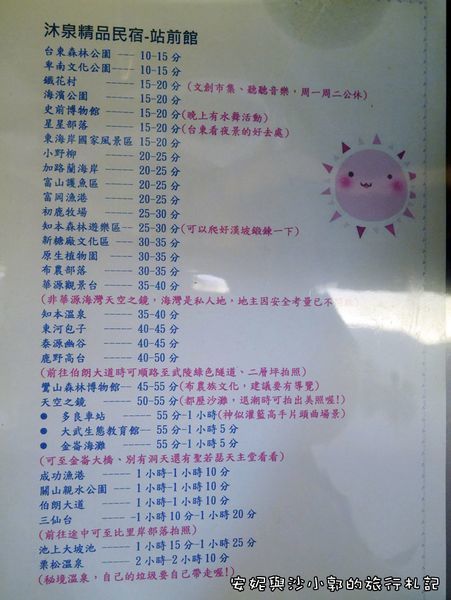 沐泉精品民宿-站前館
台東森林公園 --- 10-15 分
卑南文化公園---- 10-15 分
鐵花村 ----- 15-20 分(文創市集、聽聽音樂，周一周二公休)
海濱公園 ----- 15-20 分
史前博物館 ----- 15-20 分(晚上有水舞活動)
星星部落 ----- 15-20 分(台東看夜景的好去處)
東海岸國家風景區 15-20 分
小野柳 ----- 20-25 分
加路蘭海岸 ----- 20-25 分
富山護魚區 ----- 20-25 分
富岡漁港 ----- 20-25 分
初鹿牧場 ----- 25-30 分
知本森林遊樂區-- 25-30 分(可以爬好漢坡鍛鍊一下)
新糖廠文化區 --- 30-35 分
原生植物園 ---- 30-35 分
布農部落 ----- 30-35 分
華源觀景台 ---- 35-40 分
(非華源海灣天空之鏡，海灣是私人地，地主因安全考量已不
知本溫泉 ----- 35-40 分
東河包子 ----- 40-45 分
泰源幽谷 ----- 40-45 分
鹿野高台 ----- 40-50 分
(前往伯朗大道時可順路至武陵綠色隧道、二層坪拍照)
鸞山森林博物館-- 45-55 分(布農族文化，建議要有導覽)
天空之鏡 ----- 50-55 分(都歷沙灘，退潮時可拍出美照喔!)
● 多良車站 ----- 55 分-1 小時(神似灌籃高手片頭曲場景)
● 大武生態教育館-- 55 分-1 小時 5 分
● 金崙海灘 ----- 55 分-1 小時 5 分
(可至金崙大橋、別有洞天還有聖若瑟天主堂看看)
成功漁港 ----- 1 小時-1 小時 10 分
關山親水公園 --- 1 小時-1 小時 10 分
伯朗大道 ----- 1 小時-1 小時 10 分
三仙台 ----- 1 小時 10 分-1 小時 20 分
(前往途中可至比里岸部落拍照)
池上大坡池 ---- 1 小時 15 分-1 小時 25 分
栗松溫泉 ----- 2 小時-2 小時 10 分
(秘境溫泉，自己的垃圾要自己帶走喔!)
安妮與沙小郭的旅行札記